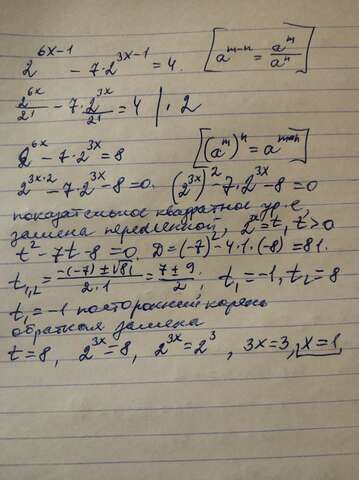 2^(6x-1) - 7·2^(3x-1) = 4. [a^(m-n) = a^m/a^n]
2^(6x)/2^1 - 7·2^(3x)/2^1 = 4 |·2
2^(6x) - 7·2^(3x) = 8 [(a^m)^n = a^(m·n)]
2^(3x·2) - 7·2^(3x) - 8 = 0. (2^(3x))^2 - 7·2^(3x) - 8 = 0
показательное квадратное ур-е,
замена переменной, 2^(3x) = t, t > 0
t^2 - 7t - 8 = 0. D = (-7)^2 - 4·1·(-8) = 81.
t_(1,2) = (-(-7) ± √81)/(2·1) = (7 ± 9)/2, t_1 = -1, t_2 = 8
t_1 = -1 посторонний корень
обратная замена
t = 8, 2^(3x) = 8, 2^(3x) = 2^3, 3x = 3, x = 1